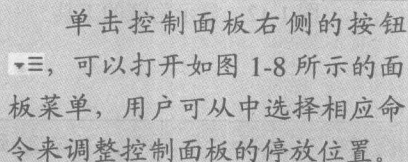 单击控制面板右侧的按钮
，可以打开如图 1-8 所示的面
板菜单，用户可从中选择相应命
令来调整控制面板的停放位置。